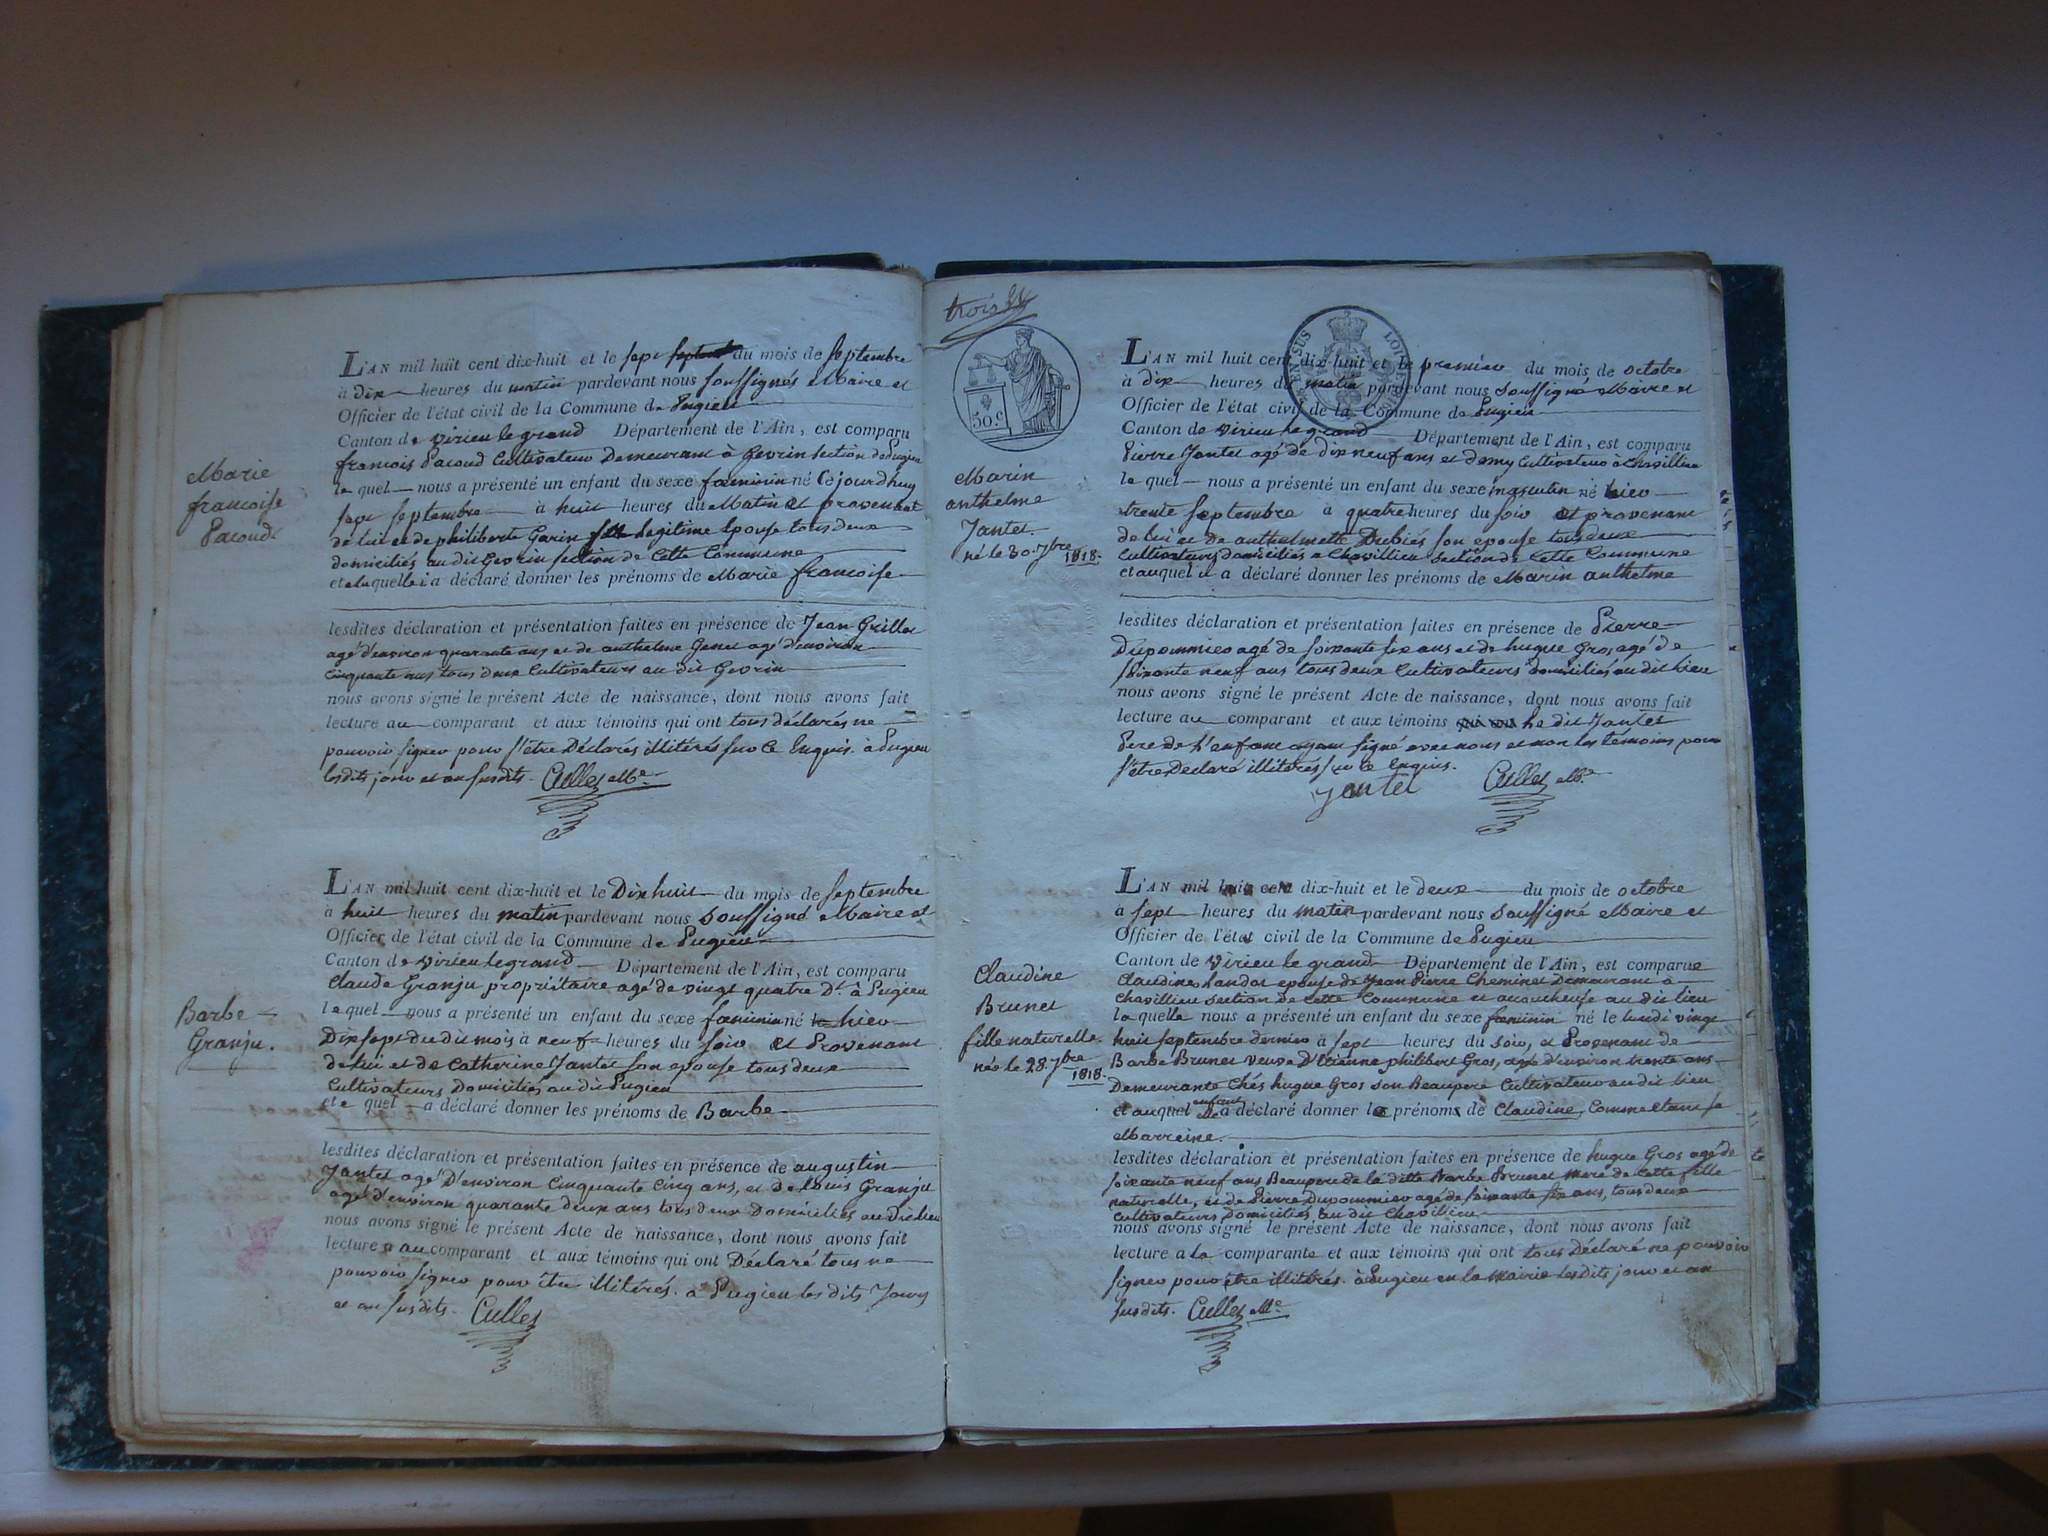 Marie
francoise
Pacoud
L'AN mil huit cent dix-huit et le sept du mois de septembre
à dix heures du matin pardevant nous soussignés Maire et
Officier de l'état civil de la Commune de Pugieu
Canton de virieu le grand Département de l'Ain, est comparu
francois Pacoud Cultivateur Demeurant à Gevrin section de Pugieu
le quel nous a présenté un enfant du sexe foeminin né Cejourdhuy
sept septembre à huit heures du Matin et provenant
de lui et de philiberte Garin legitime Epouse tous deux
domiciliés au dit Gevrin section de Cette Commune
et a declaré donner les prénoms de Marie francoise
lesdites déclaration et présentation faites en présence de Jean Grillet
agé d'environ quarante ans et de anthelme Genet agé d'environ
Cinquante ans tous deux Cultivateurs au dit Gevrin
nous avons signé le présent Acte de naissance, dont nous avons fait
lecture au comparant et aux témoins qui ont tous déclarés ne
pouvoir signer pour s'être Déclarés illitérés sur ce Enquis. à Pugieu
lesdits jour et an susdits. Cullet Me
Barbe
Granju.
L'AN mil huit cent dix-huit et le Dix huit du mois de septembre
à huit heures du matin pardevant nous soussigné Maire et
Officier de l'état civil de la Commune de Pugieu
Canton de virieu le grand Département de l'Ain, est comparu
Claude Granju propriétaire agé de vingt quatre Dt. à Pugieu
lequel nous a présenté un enfant du sexe foeminin né hier
Dix sept du dit mois à neuf heures du soir et Provenant
de lui et de Catherine Jantet son epouse tous deux
Cultivateurs Domiciliés au dit Pugieu
et le quel a déclaré donner les prénoms de Barbe
lesdites déclaration et présentation faites en présence de augustin
Jantet agé D'environ Cinquante Cinq ans, et de Louis Granju
agé d'environ quarante deux ans tous deux Domiciliés au dit lieu
nous avons signé le présent Acte de naissance, dont nous avons fait
lecture au comparant et aux témoins qui ont Déclaré tous ne
pouvoir signer pour être illitérés. à Pugieu les dits Jours
et an susdits. Cullet
trois
50 c
Marin
anthelme
Jantet.
né le 30. 7bre
1818.
L'AN mil huit cent dix-huit et le premier du mois de octobre
à dix heures du matin pardevant nous soussigné Maire et
Officier de l'état civil de la Commune de Pugieu
Canton de virieu le grand Département de l'Ain, est comparu
Pierre Jantet agé de dix neuf ans et demy Cultivateur à Chavillieu
le quel nous a présenté un enfant du sexe masculin né hier
trente septembre à quatre heures du soir et provenant
de lui et de anthelmette Dubiés son epouse tous deux
Cultivateurs domiciliés a Chavillieu section de Cette Commune
et auquel il a déclaré donner les prénoms de Marin anthelme
lesdites déclaration et présentation faites en présence de Pierre
Dupommier agé de soixante six ans et de hugue Gros agé de
soixante neuf ans tous deux Cultivateurs domiciliés au dit lieu
nous avons signé le présent Acte de naissance, dont nous avons fait
lecture au comparant et aux témoins qui ont Le dit Jantet
Pere de L'enfant ayant signé avec nous et non les témoins pour
s'être Declaré illitérés sur ce Enquis.
Jantet Cullet Me.
Claudine
Brunet
fille naturelle.
née le 28. 7bre
1818.
L'AN mil huit cent dix-huit et le deux du mois de octobre
à sept heures du matin pardevant nous soussigné Maire et
Officier de l'état civil de la Commune de Pugieu
Canton de virieu le grand Département de l'Ain, est comparue
Claudine epouse de Jean Pierre Cheminet Demeurant à
Chavillieu section de cette Commune et accoucheuse au dit lieu
laquelle nous a présenté un enfant du sexe foeminin né le lundi vingt
huit septembre dernier à sept heures du soir, et Provenant de
Barbe Brunet veuve D'Etienne philibert Gros, agée d'environ trente ans
Demeurante Chés hugue Gros son Beaupere Cultivateur au dit lieu
et auquel enfant elle a déclaré donner le prénom de Claudine, Comme etant sa
Marreine.
lesdites déclaration et présentation faites en présence de hugue Gros agé de
soixante neuf ans Beaupere de la ditte Barbe Brunet mere de Cette fille
naturelle, et de Pierre Dupommier agé de soixante six ans, tous deux
Cultivateurs Domiciliés au dit Chavillieu
nous avons signé le présent Acte de naissance, dont nous avons fait
lecture a la comparante et aux témoins qui ont tous Déclaré ne pouvoir
signer pour être illitérés. à Pugieu en la Mairie les Dits jour et an
susdits. Cullet Me